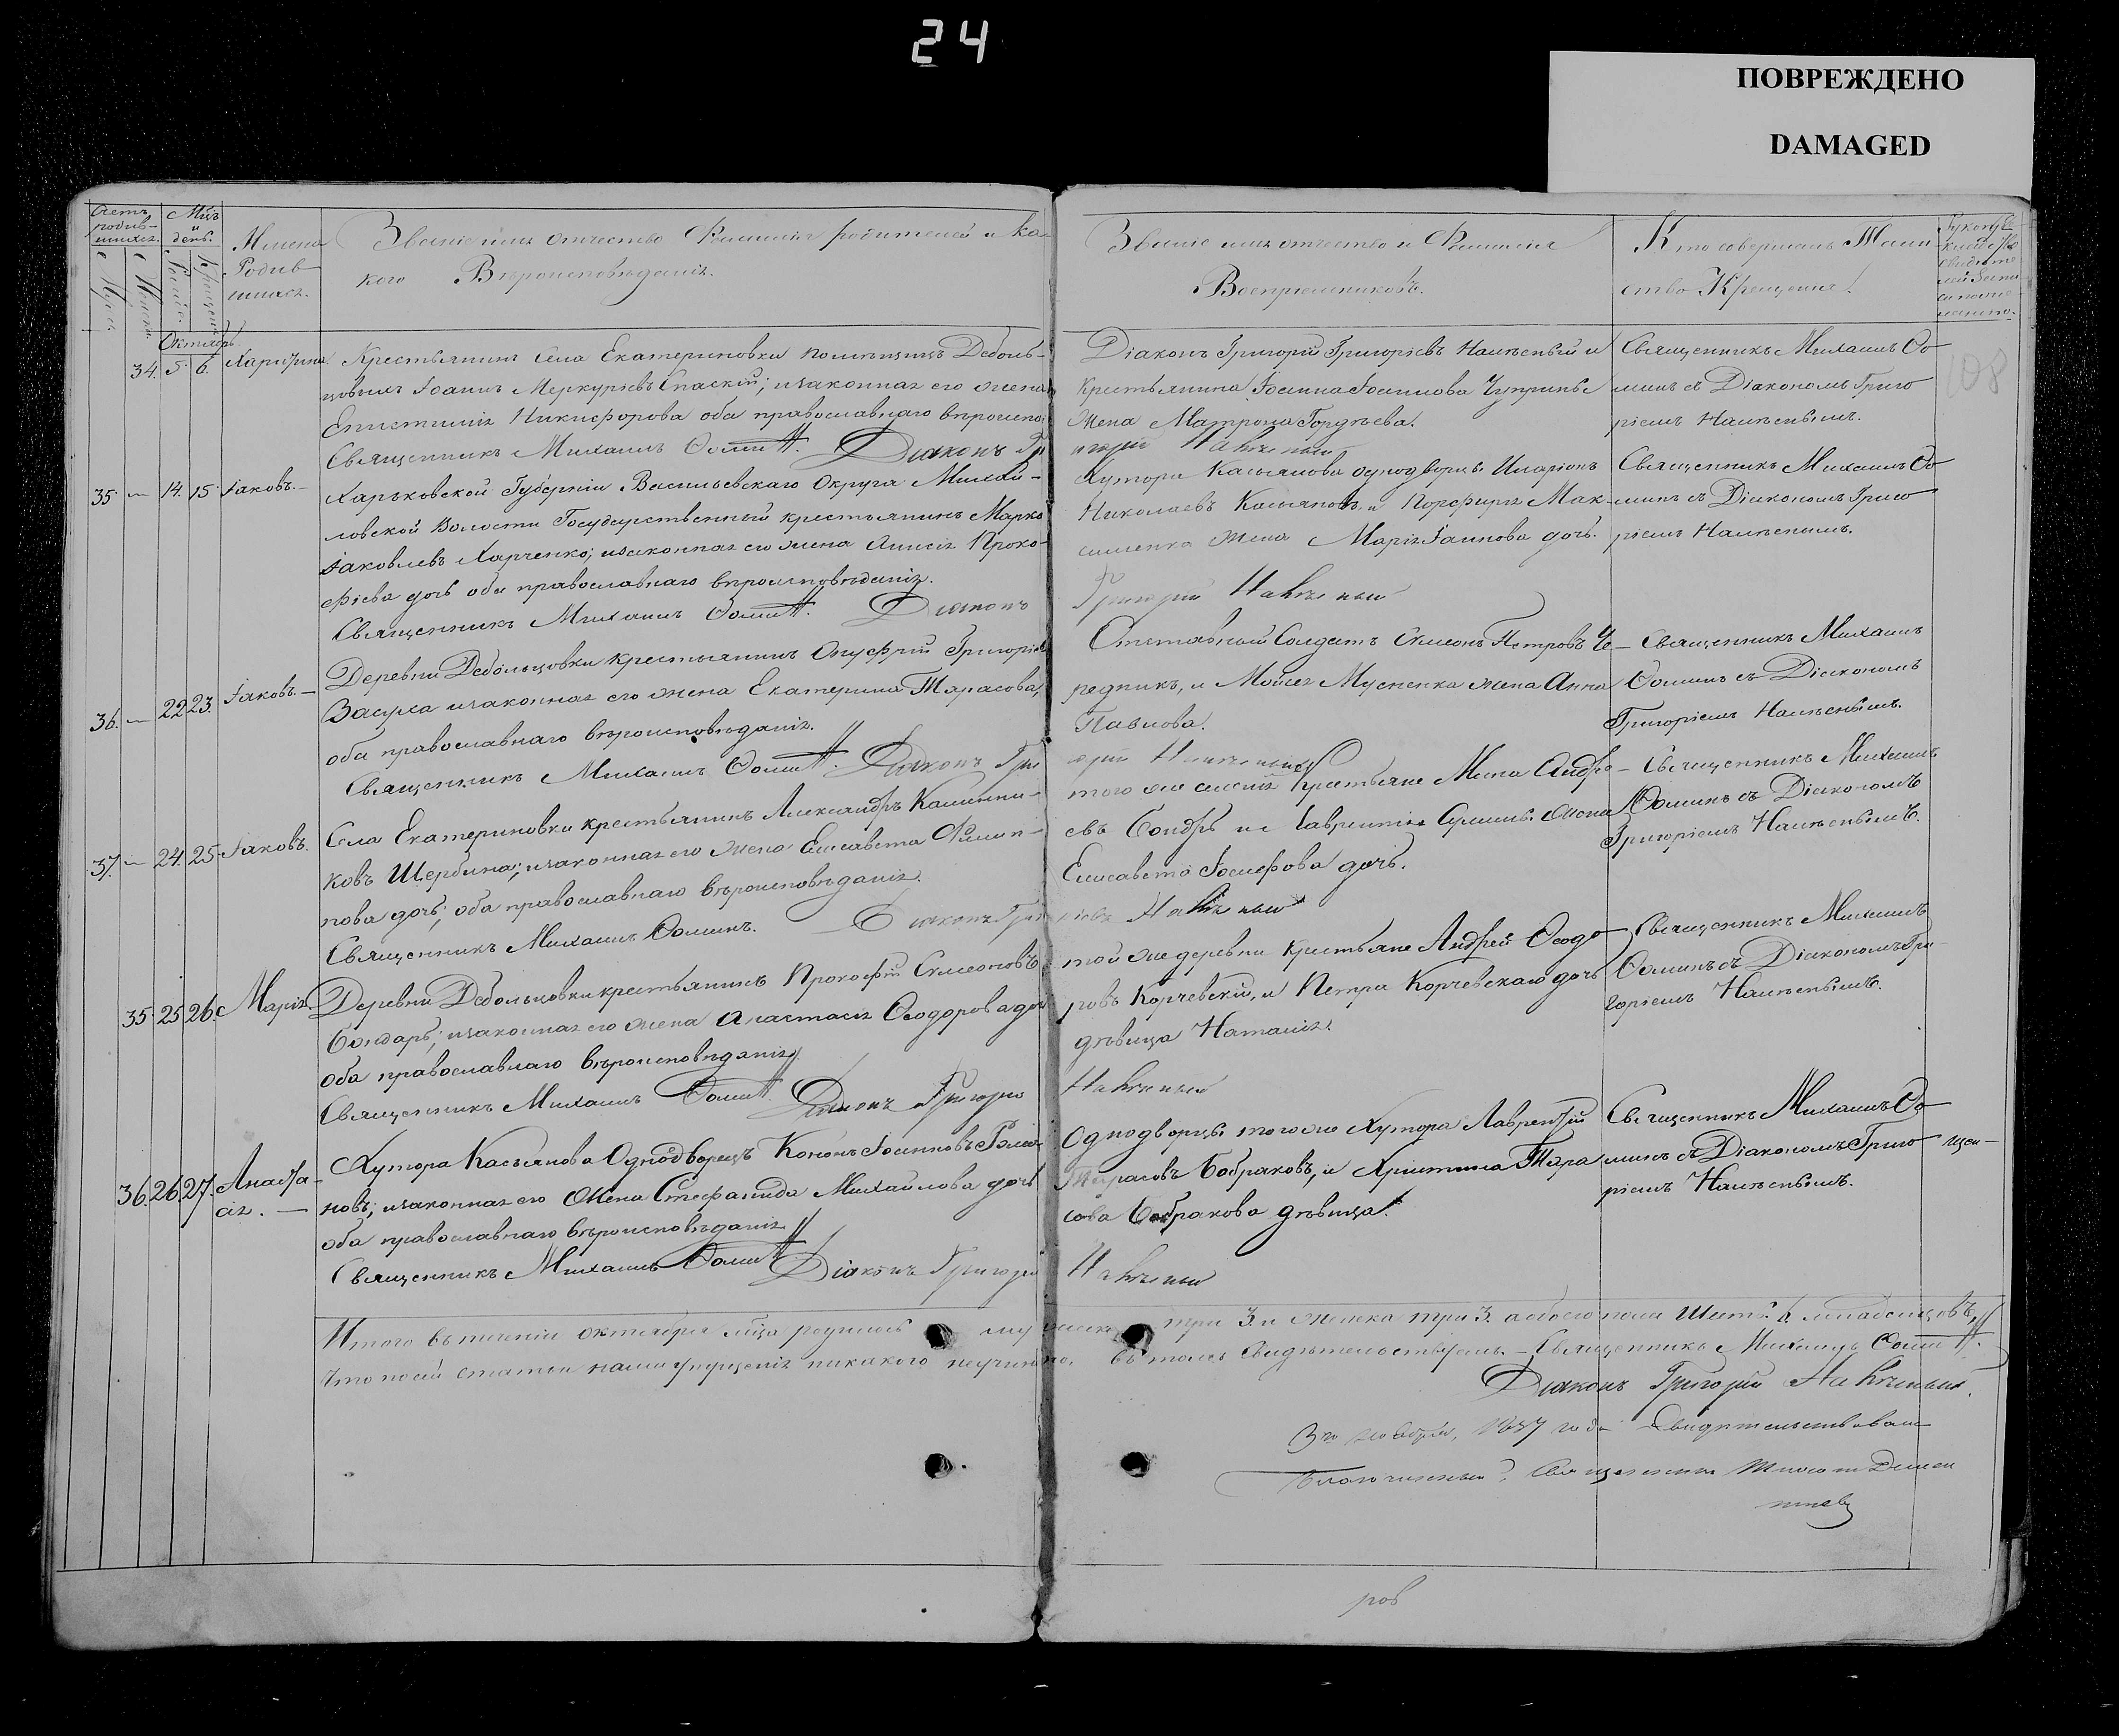 24
ПОВРЕЖДЕНО
DAMAGED
Счетъ родив-шихся.
Мѣц. и день.
Имена Родив-шихся.
Званіе имя отчество Фамилія родителей и ка-
кого Вѣроисповѣданія.
Званіе имя отчество и Фамилія
Воспріемниковъ.
Кто совершалъ Таин-
ство Крещенія.
Октябрь
34. 5. 6. Харитина
Крестьянинъ Села Екатериновки помѣщицъ Деболь-
цовыхъ Іоаннъ Меркуріевъ Спаскій; и законная его жена
Епистимія Никифорова оба православнаго вѣроиспо.
Священникъ Михаилъ Ѳоминъ. Діаконъ Гри
Діаконъ Григорій Григоріевъ и
Крестьянина Іоанна Іоаннова жена
Матрона Гордѣева.
Священникъ Михаилъ Ѳо
минъ съ Діакономъ Григо
ріемъ
108
35 — 14. 15. Іаковъ. —
Харьковской Губерніи Васильевскаго Округа Михай-
ловской Волости Государственный крестьянинъ Марко
Іаковлевъ Харченко; и законная его жена Анисія Проко-
фіева дочь оба православнаго вѣроисповѣданія.
Священникъ Михаилъ Ѳоминъ. Діаконъ
Хутора Касьянова однодворцы Иларіонъ
Николаевъ Касьяновъ, и Порфирія Мак-
сименка жена Марія Іаннова дочь.
Григорій
Священникъ Михаилъ Ѳо
минъ съ Діакономъ Григо
ріемъ
36. — 22 23. Іаковъ. —
Деревни Дебольцовки крестьянинъ Онуфрій Григорьевъ
Засуха и законная его жена Екатерина Тарасова,
оба православнаго вѣроисповѣданія.
Священникъ Михаилъ Ѳоминъ. Діаконъ Гри
Отставной Солдатъ Симеонъ Петровъ Че-
редникъ, и Мойсея Мусіенка жена Анна
Павлова.
Священникъ Михаилъ
Ѳоминъ съ Діакономъ
Григоріемъ
37. — 24. 25 Іаковъ.
Села Екатериновки крестьянинъ Александръ Калинни-
ковъ Щербина; и законная его жена Елисавета Филип-
пова дочь; оба православнаго вѣроисповѣданія.
Священникъ Михаилъ Ѳоминъ. Діаконъ Гри
того же селенія Крестьяне Мина Андре-
евъ Бондрь и Лаврентія жена
Елисавета Іосифова дочь.
Священникъ Михаилъ
Ѳоминъ съ Діакономъ
Григоріемъ
35. 25 26. Марія.
Деревни Дебольцовки крестьянинъ Прокофій Симеоновъ
Бондарь; и законная его жена Анастасія Ѳеодорова доч
оба православнаго вѣроисповѣданія
Священникъ Михаилъ Ѳоминъ. Діаконъ Григорій
той же деревни крестьяне Андрей Ѳеодо
ровъ Корчевскій, и Петра Корчевскаго дочь
дѣвица Наталія.
Священникъ Михаилъ
Ѳоминъ съ Діакономъ Гри-
горіемъ
36. 26. 27. Анаста-
сія. —
Хутора Касьянова Однодворецъ Кононъ Іоанновъ Рома-
новъ; и законная его Жена Стефанида Михайлова дочь
оба православнаго вѣроисповѣданія
Священникъ Михаилъ Ѳоминъ Діаконъ Григорій
Однодворцы того же Хутора Лаврентій
Тарасовъ Бобраковъ, и Христина Тара
сова Бобракова дѣвица.
Священникъ Михаилъ Ѳо
минъ съ Діакономъ Григо
ріемъ
Итого въ теченіи октября мѣца родилось мужеска три 3. и женска три 3. а обоего пола Шесть 6. младенцовъ,
Что по сей статьи нами упущенія никакого неучинено. въ томъ Свидѣтельствуемъ. — Священникъ Михаилъ Ѳоминъ.
Діаконъ Григорій
3го ноября, года Свидѣтельствовалъ
Благочинный, Священникъ
ров